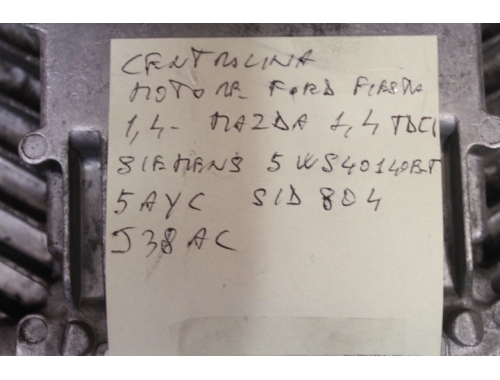 CENTRALINA
MOTORE FORD FIESTA
1,4- MAZDA 1,4 TDCI
SIEMENS 5WS40140BT
5AYC SID 804
J38AC